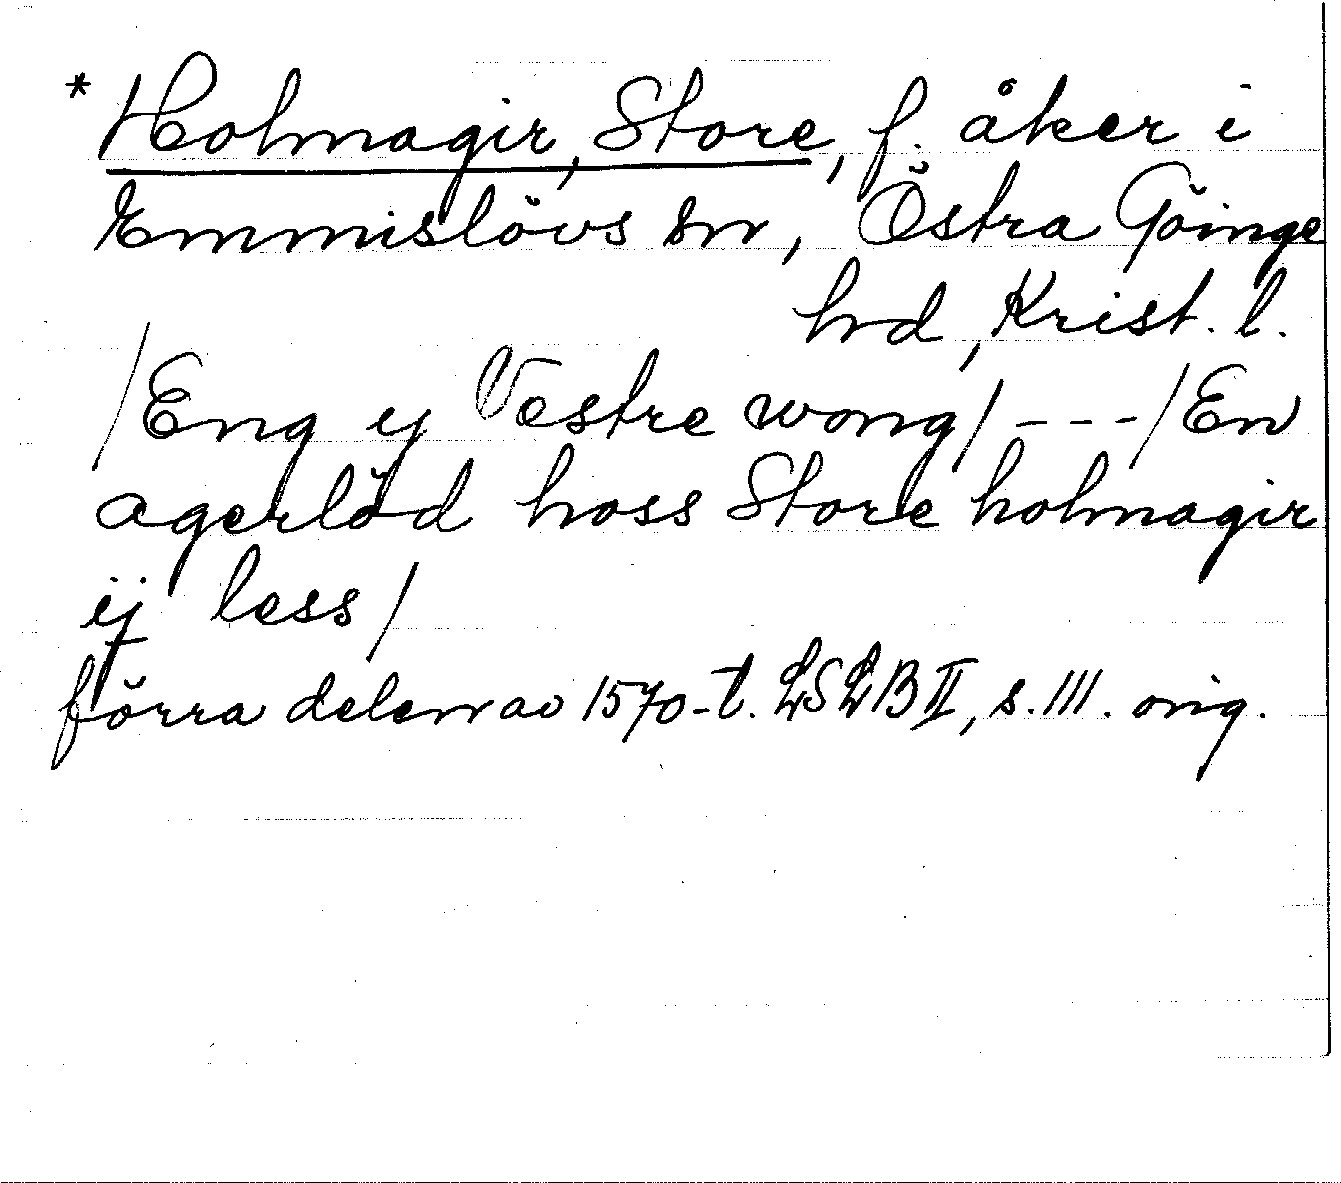 * Holmagir, Store, f. åker i
Emmislövs sn, Östra Göinge
hd, Krist. l.
/Eng ij Vestre wong/ - - - /En
agerlöd hoss Store holmagir
ij less/
förra delen av 1570-t. LSLB II, s. 111. orig.